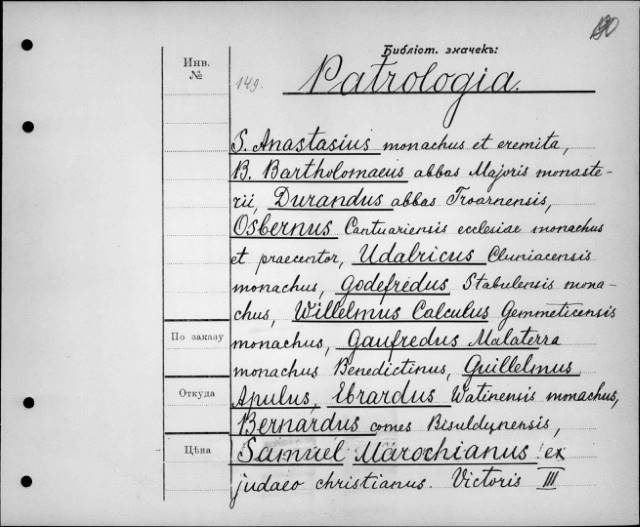 Библіот. значекъ:
Инв.
№
149.
Patrologia.
S. Anastasius monachus et eremita,
B. Bartholomaeus abbas Majoris monaste-
rii, Durandus abbas Troarnensis,
Osbernus Cantuariensis ecclesiae monachus
et praecentor, Udalricus Cluniacensis
monachus, Godefredus Stabulensis mona-
chus, Willelmus Calculus Gemmeticensis
По заказу
monachus, Gaufredus Malaterra
monachus Benedictinus, Guillelmus
Откуда
Apulus, Ebrardus Watinensis monachus,
Bernardus comes Bisuldunensis,
Цѣна
Samuel Marochianus ex
judaeo christianus. Victoris III